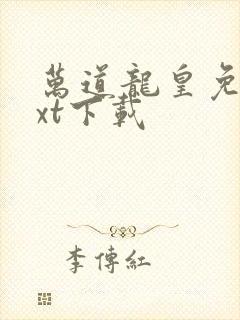 萬道龍皇免
xt下載
李傳紅